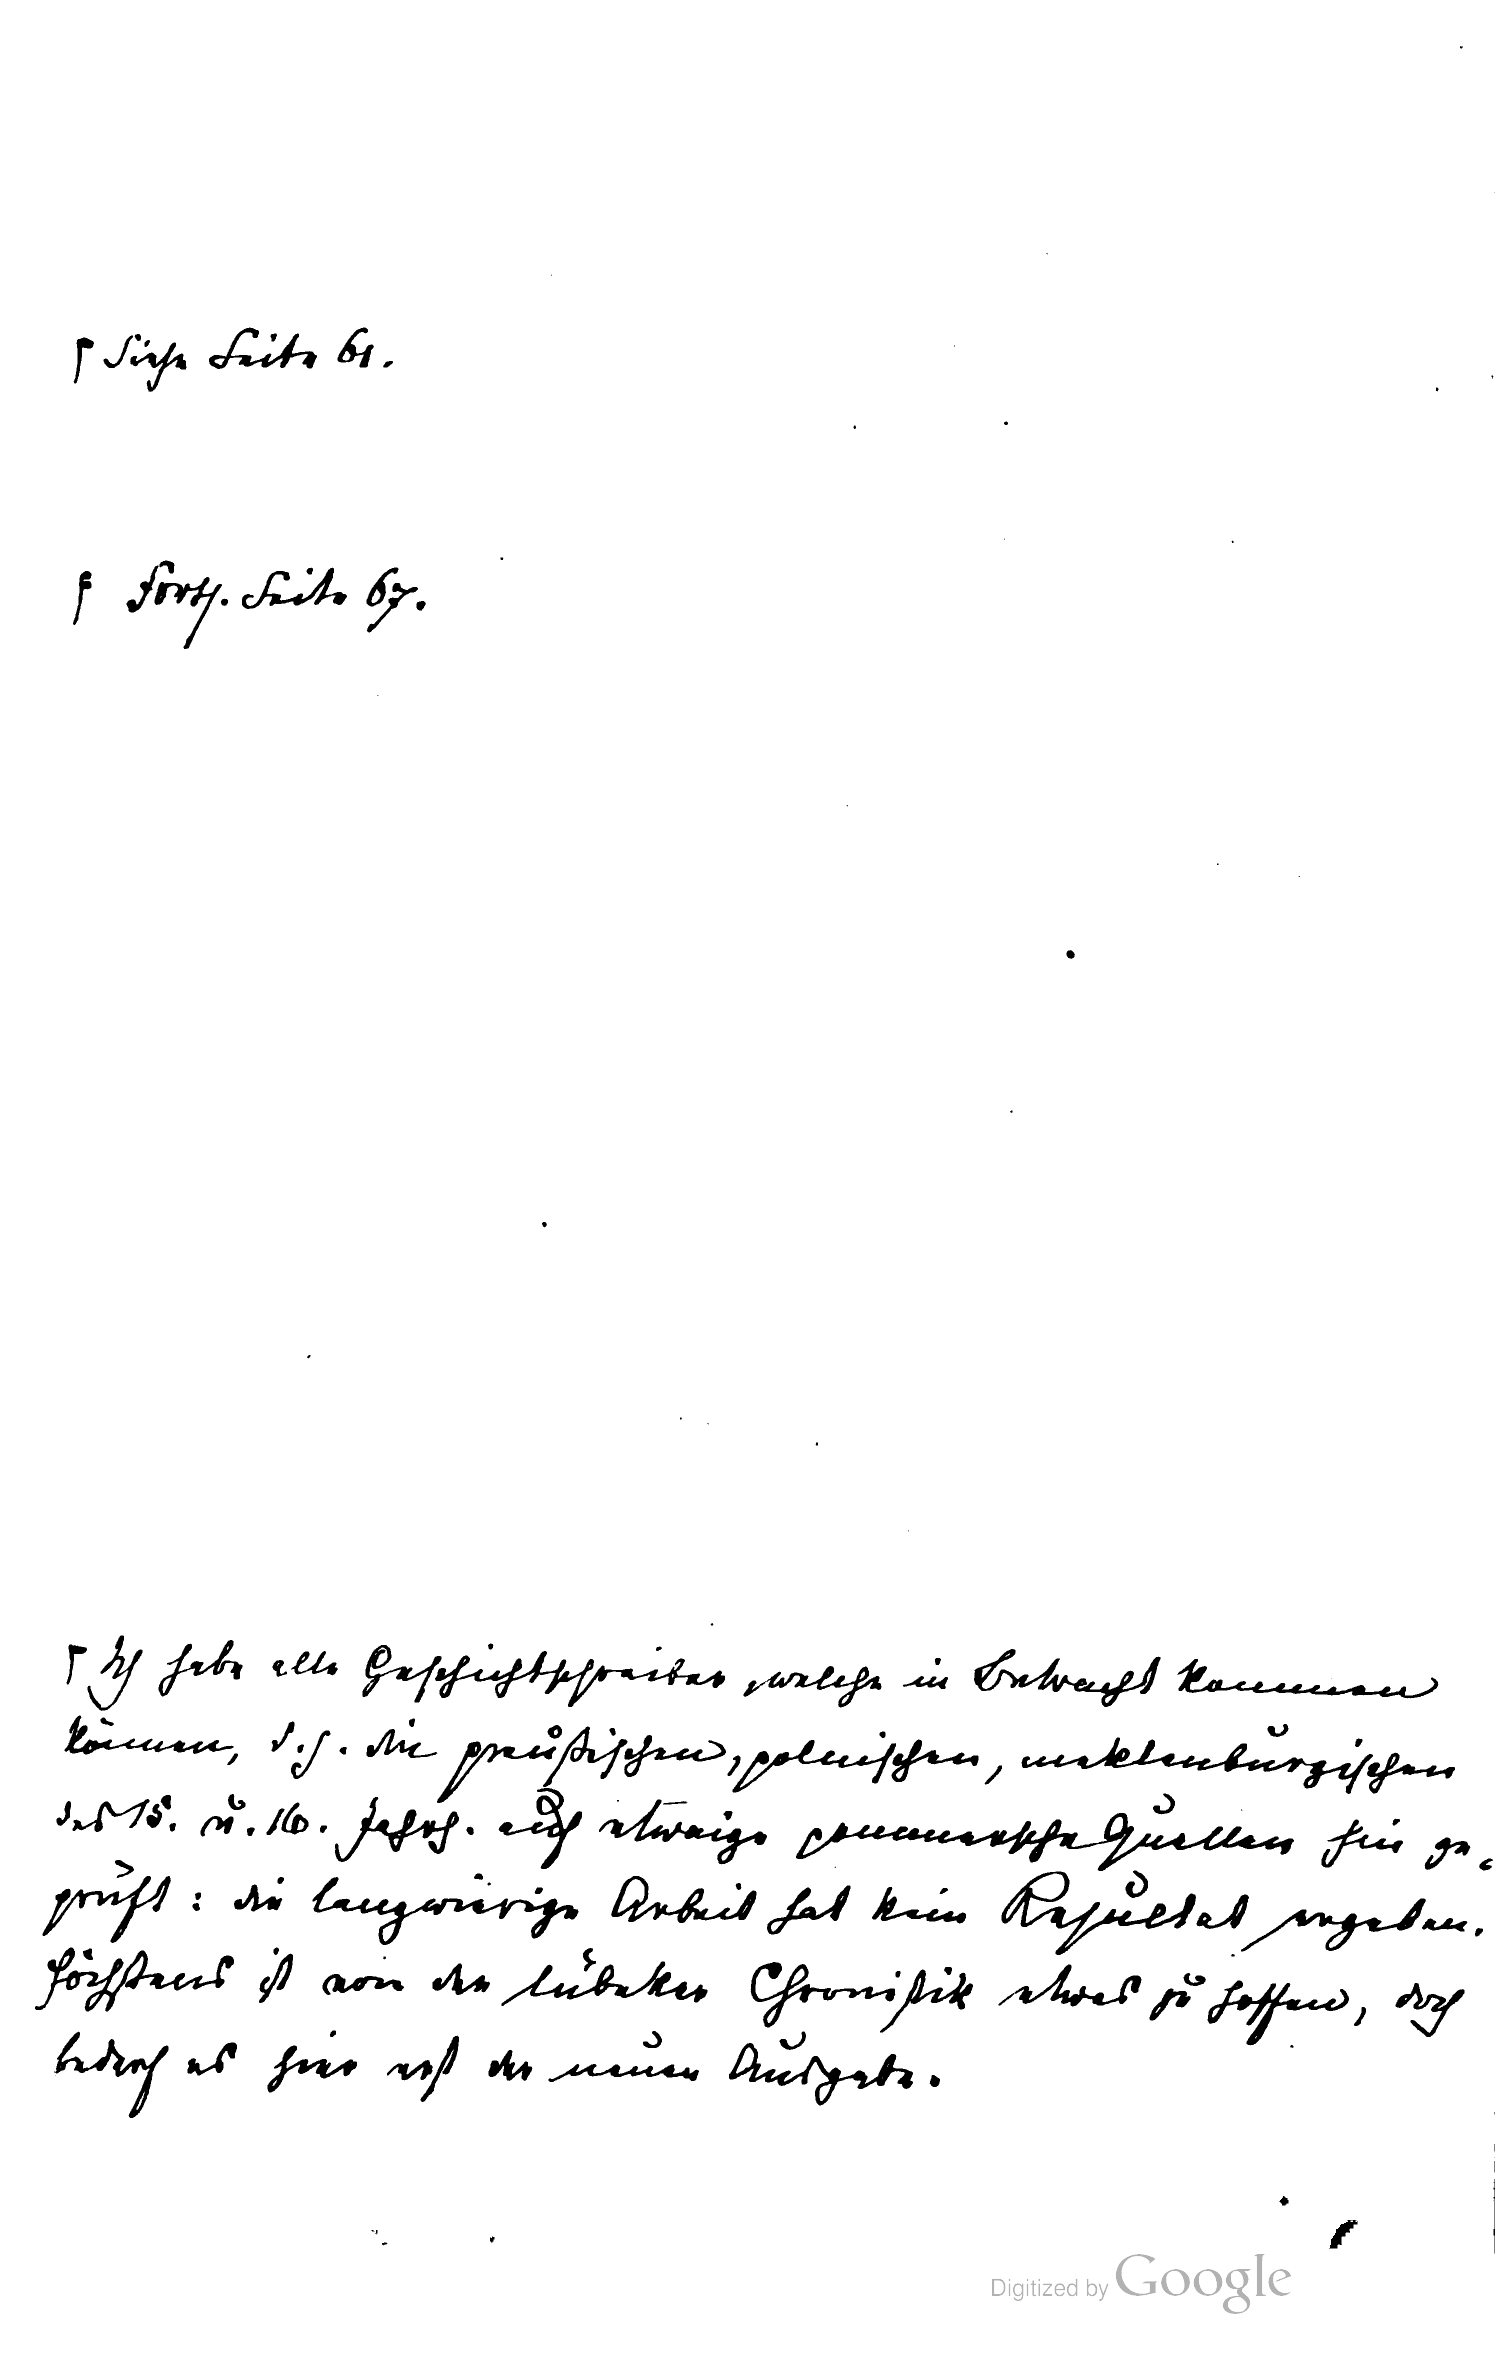 Siehe Seite 61.
Forts. Seite 67.
Ich habe alle Geschichtschreiber, welche in Betracht kommen
können, d. h. die preußischen, polnischen, meklenburgischen
des 15. u. 16. Jahrh. auf etwaige pommersche Quellen hin ge-
prüft: die langwierige Arbeit hat kein Resultat ergeben.
Höchstens ist von der lübeker Chronistik etwas zu hoffen, doch
bedarf es hier erst der neuen Ausgabe.
Digitized by Google